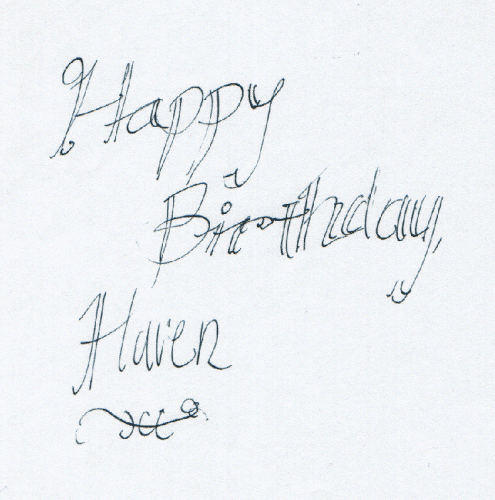 Happy
Birthday,
Haven